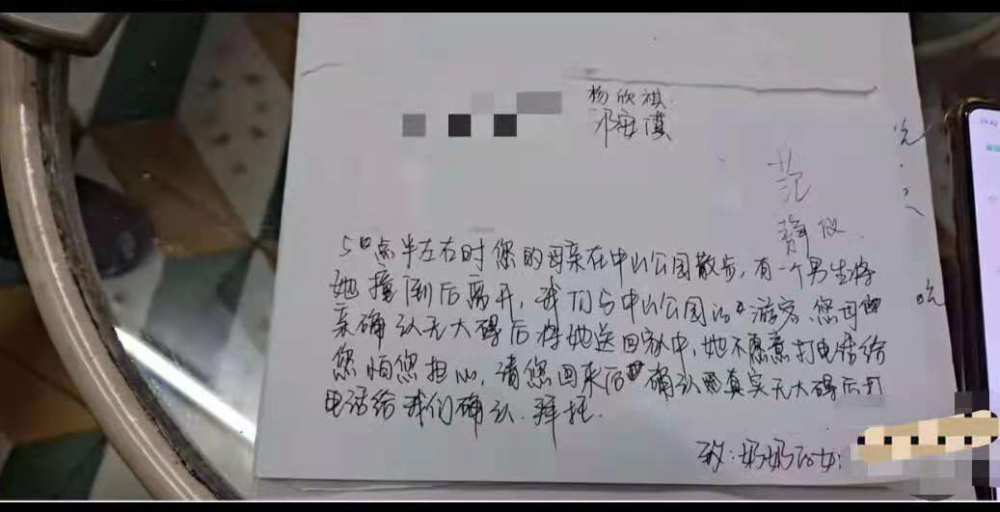 杨欣祺
邓安淇
范
静仪
5点半左右时您的母亲在中山公园散步,有一个男生将
她撞倒后离开,我们与中山公园的游客 您母
亲确认无大碍后将她送回家中,她不愿意打电话给
您怕您担心,请您回来后确认真实无大碍后打
电话给我们确认.拜托.
致:奶奶的女: